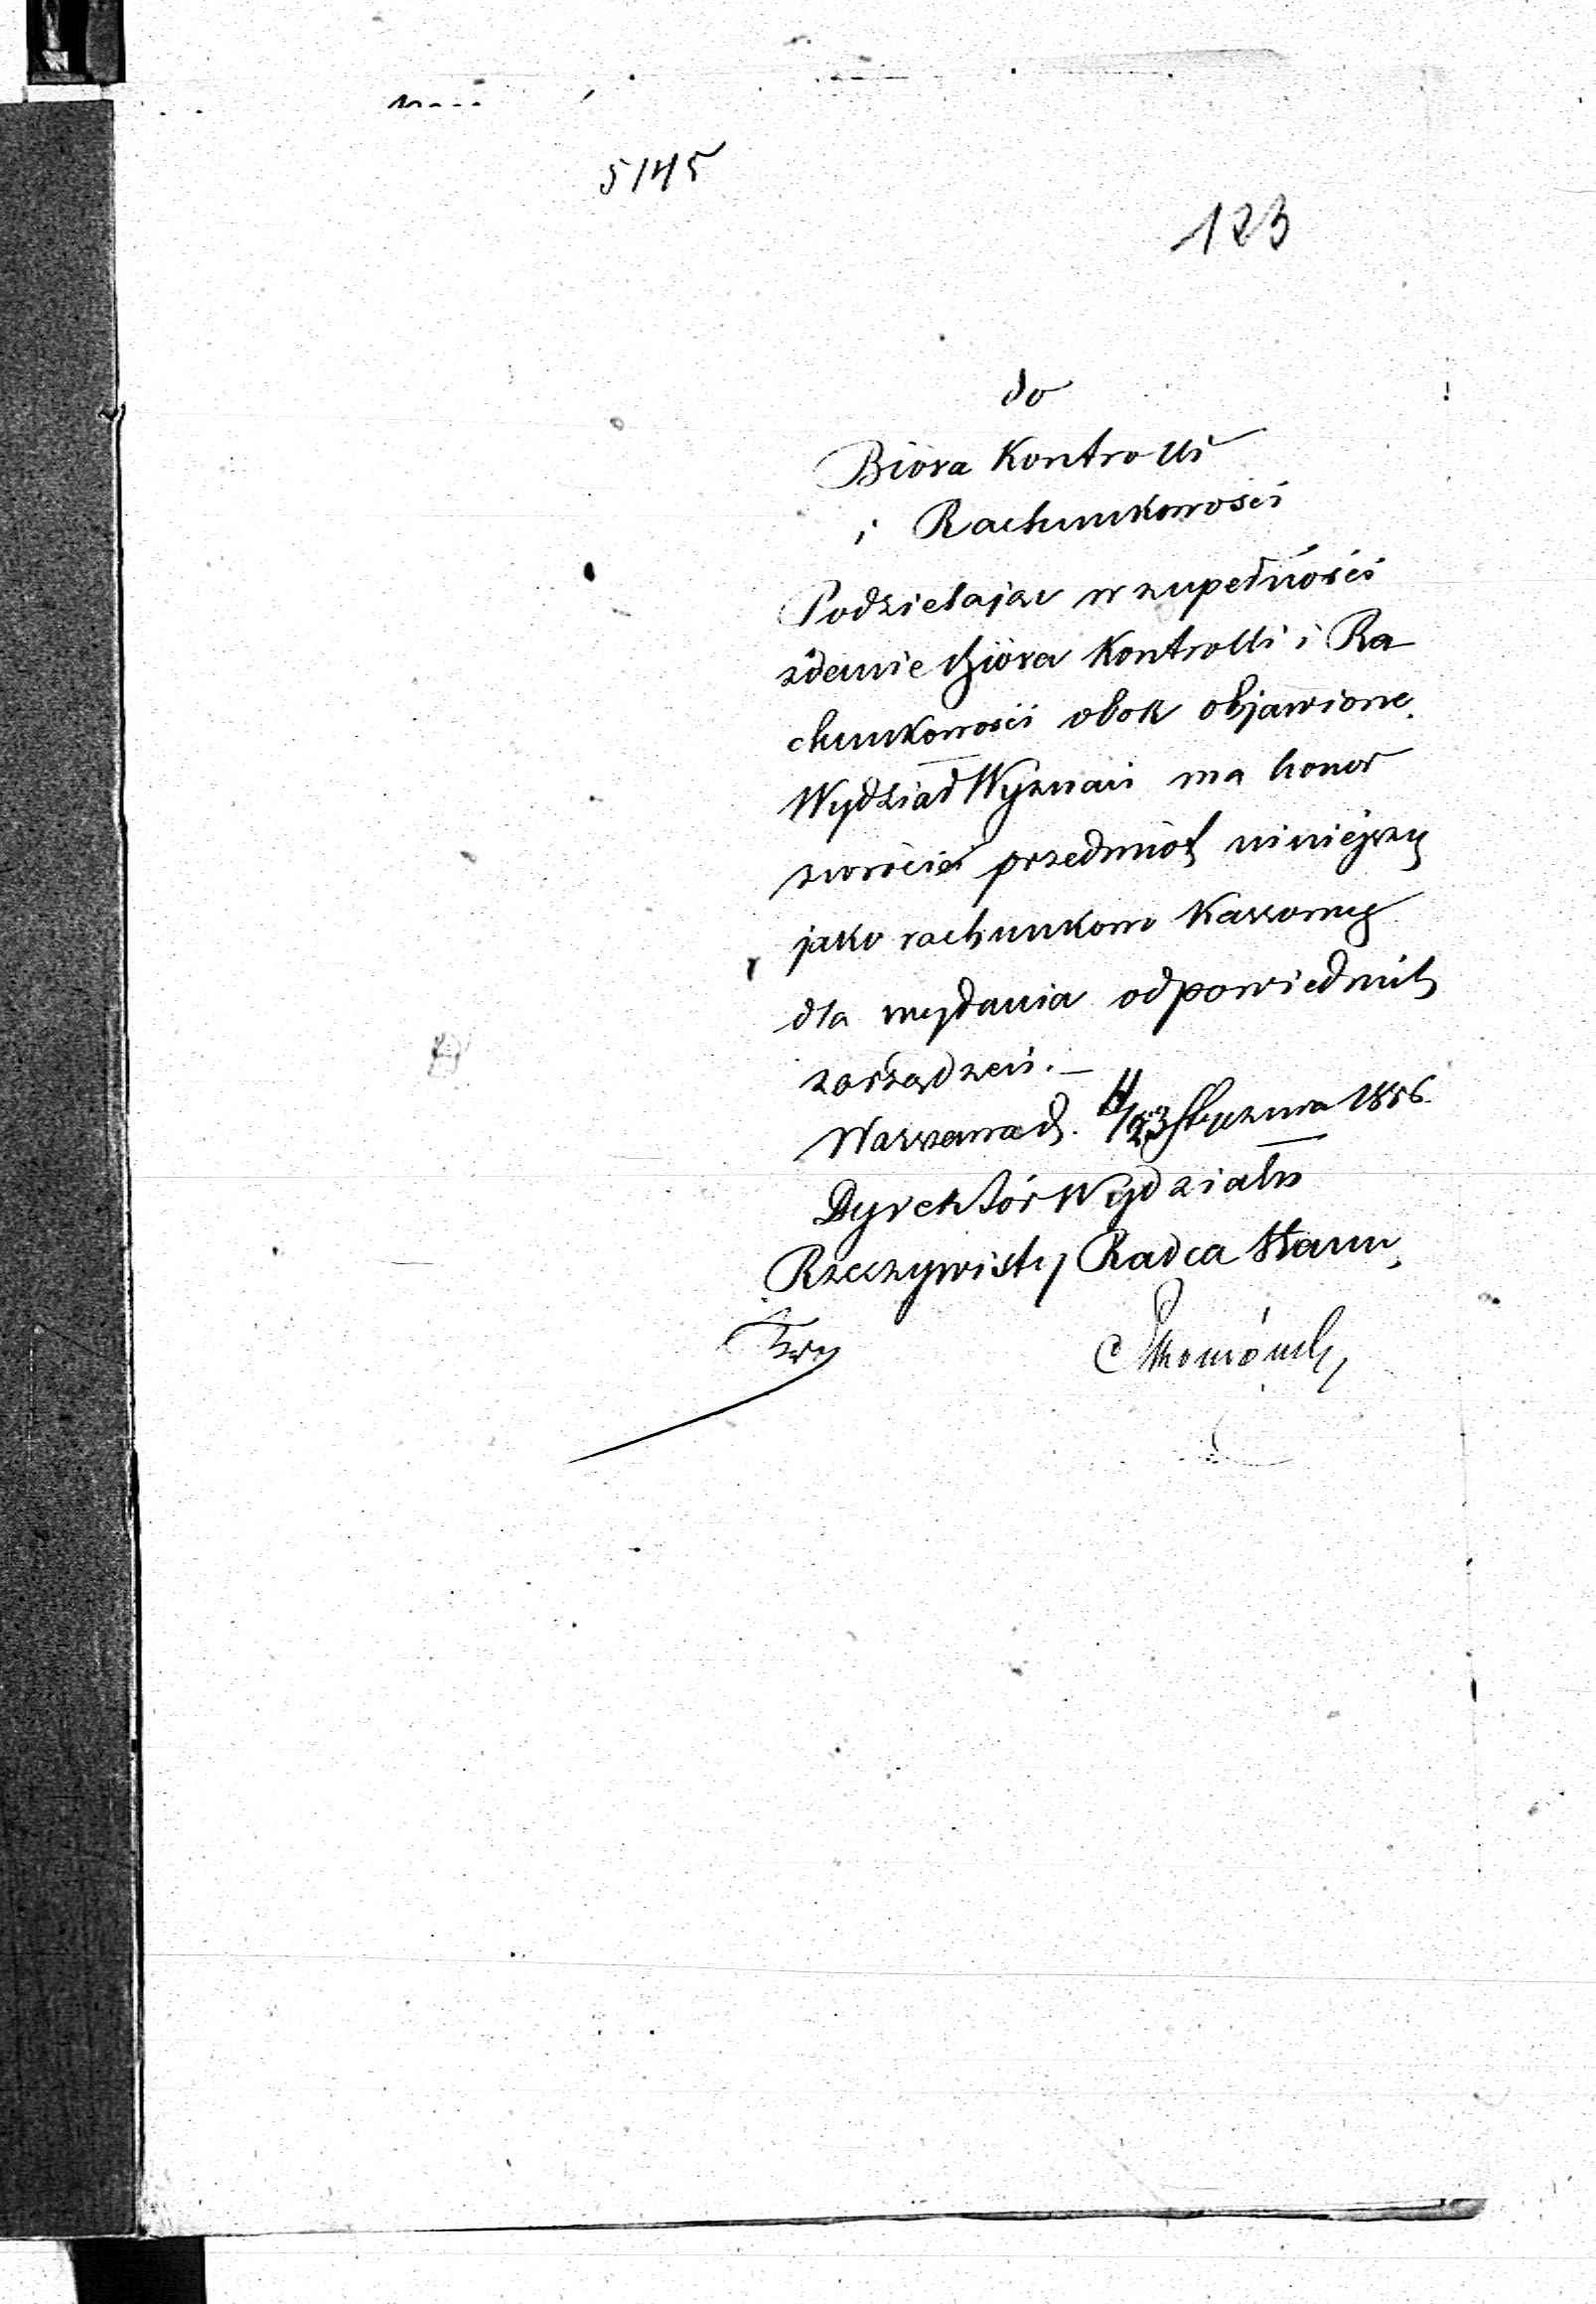 5145
123
do
Bióra Kontrolli
i Rachunkowości
Podzielając w zupełności
zdanie Bióra Kontrolli i Ra-
chunkowości obok objawione,
Wydział Wyznań ma honor
zwrócić przedmiot niniejszy
jako rachunkowo Kassowy
dla wydania odpowiednich
zarządzeń. —
Warszawa d. 11/23 Stycznia 1856.
Dyrektór Wydziału
Rzeczywisty Radca Stanu,